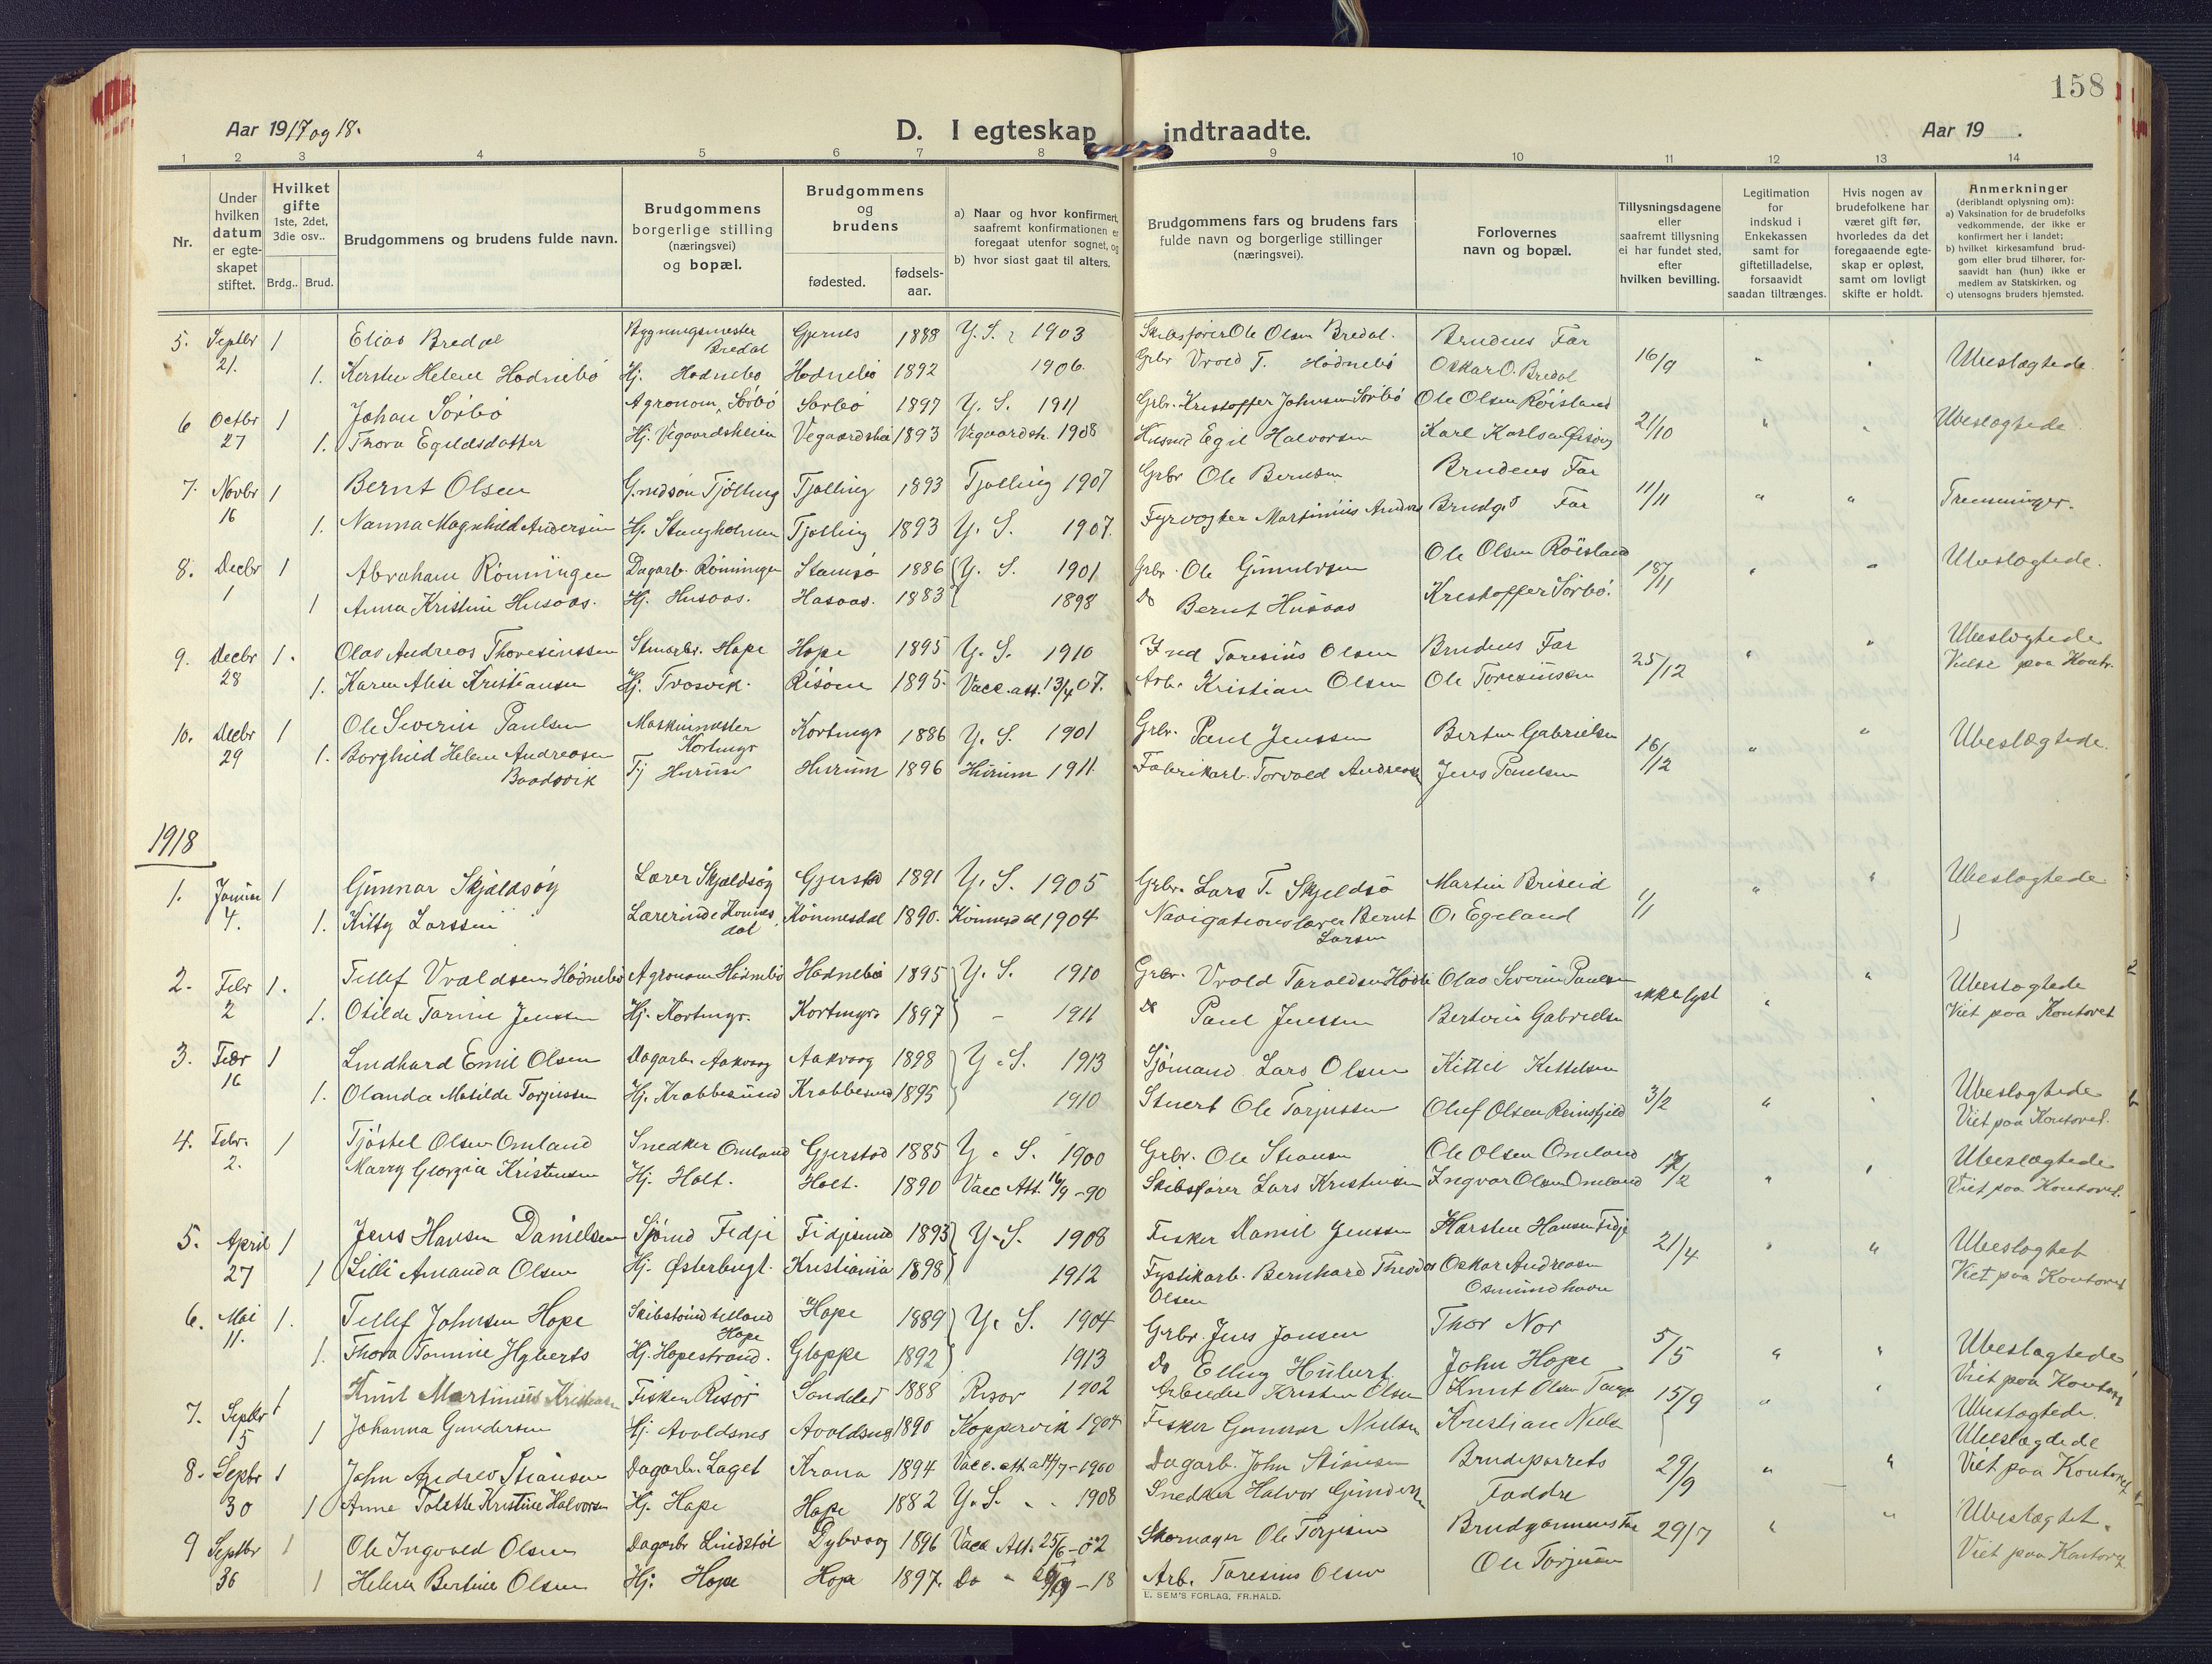 158
Aar 1917 og 18.
D. I egteskap indtraadte.
Aar 19 .
1 2 3 4 5 6 7 8 9 10 11 12 13 14
Nr.
Under hvilken datum er egteskapet stiftet.
Hvilket gifte 1ste, 2det, 3die osv..
Brdg.. Brud.
Brudgommens og brudens fulde navn.
Brudgommens borgerlige stilling (næringsvei) og bopæl.
Brudgommens og brudens
fødested. fødselsaar.
a) Naar og hvor konfirmert, saafremt konfirmationen er foregaat utenfor sognet, og
b) hvor sidst gaat til alters.
Brudgommens fars og brudens fars fulde navn og borgerlige stillinger (næringsvei).
Forlovernes navn og bopæl.
Tillysningsdagene eller saafremt tillysning ei har fundet sted, efter hvilken bevilling.
Legitimation for indskud i Enkekassen samt for giftetilladelse, forsaavidt saadan tiltrænges.
Hvis nogen av brudefolkene har været gift før, hvorledes da det foregaaende egteskap er opløst, samt om lovligt skifte er holdt.
Anmerkninger (deriblandt oplysning om):
a) Vaksination for de brudefolks vedkommende, der ikke er konfirmert her i landet;
b) hvilket kirkesamfund brudgom eller brud tilhører, forsaavidt han (hun) ikke er medlem av Statskirken, og
c) utensogns bruders hjemsted.
5. Septbr 1 Elias Bredal Bygningsmester Bredal Gjernes 1888 Y. S. 1903 Skibsfører Ole Olsen Bredal. Brudens Far 16/9 " " Ubeslægtede.
21. 1. Kersten Helene Hødnebö Hj. Hødnebö Hødnebö 1892 1906. Grbr Vrold T. Hödnebö Oskar O. Bredal
6 Octbr 1 Johan Sörbö Agronom, Sörbö Sörbö 1897 Y. S. 1911 Grbr. Kristoffer Johnsen Sörbö Ole Olsen Röisland 21/10 " " Ubeslægtede.
27 1. Thora Egeldsdatter Hj. Vegaardsheien Vegaardshei 1893 Vegaardsh. 1908 Husmd Egil Halvorsen Karl Karlsen
7. Novbr 1 Bernt Olsen Grndsön Tjölling Tjølling 1893 Tjølling 1907 Grbr Ole Berntsen Brudens Far 11/11 " " Tremenninger.
16 1. Nanna Magnhild Andersen Hj. Stangholmen Tjølling 1893 Y. S. 1907. Fyrvogter Martinius Anders Brudg.s Far
8. Decbr 1 Abraham Rönningen Dagarb. Rönningen Stamsö 1886 Y. S. 1901 Grbr. Ole Gunnulvsen Ole Olsen Röisland 18/11 " " Ubeslægtede.
1 1 Anna Kristine Husaas. Hj. Husaas. Hasaas. 1883 1898 Do Bernt Husaas Kristoffer Sörbö.
9. Decbr 1. Olav Andreas Thoresenssen Stuarbr. Hope Hope 1895 Y. S. 1910 Ind Toresius Olsen Brudens Far 25/12 " " Ubeslægtede
28 1. Karen Alise Kristiansen Hj. Trosvik. Risöen 1895. Vacc. att. 13/4 07. Arb. Kristian Olsen Ole Toresiussen Vielse paa Kontr.
10. Decbr 1 Ole Severin Paulsen Maskinmester Kortmyr Kortmyr 1886 Y. S. 1901 Grbr. Paul Jenssen Bertin Gabrielsen 16/12 " " Ubeslægtede.
29 1. Borghild Helene Andreasen Baadsvik Tj Hurum Hurum 1896 Hurum 1911. Fabrikarb. Torvald Andreasen Jens Paulsen
1918
1. Januar 1 Gunnar Skjældsöy Lærer Skjældsöy Gjerstad 1891 Y. S. 1905 Grbr. Lars T. Skjeldsö Martin Briseid 1/1 " " Ubeslægtede
4. 1. Kitty Larssen Lærerinde Konnesdal Könnesdal 1890. Könnesdal 1904 Navigationslærer Bernt Larsen O. Egeland
2. Febr 1. Tellef Vraldsen Hödnebö Agronom Hödnebö Hødnebö 1895 Y. S. 1910 Grbr. Vrold Taraldsen Hödn Olav Severin Paulsen ikke lyst " " Ubeslægtede
2 1. Otilde Tarine Jenssen Hj. Kortmyr. Kortmyr. 1897 - 1911 do Paul Jenssen Bertein Gabrielsen Viet paa Kontoret
3. Febr 1 Lindhard Emil Olsen Dagarb. Aakvaag Aakvaag 1898 Y. S. 1913 Sjömand Lars Olsen Kittil Kittelsen 3/2 " " Ubeslægtede
16 1. Olanda Matilde Torjussen Hj. Krabbesund Krabbesund 1895 1910 Stuert Ole Torjussen Oluf Olsen Reinsfjeld Viet paa Kontoret.
4. Febr. 1 Tjöstel Olsen Omland Snedker Omland Gjerstad 1885 Y. S. 1900 Grbr. Ole Stiansen Ole Olsen Omland 17/2 " " Ubeslægtede
2. Marry Georgia Kristensen Hj. Holt. Holt. 1890 Vacc Att. 16/9 -90 Skibsfører Lars Kristensen Ingvar Olsen Omland Viet paa Kontoret.
5. April 1 Jens Hansen Danielsen Sjömd Fidje Fidjesund 1893 Y. S. 1908 Fisker Daniel Jenssen Karsten Hansen Fidje 21/4 " " Ubeslægtet
27 1 Lilli Amanda Olsen Hj. Østerbugt. Kristiania 1898 1912 Fyrstikarb. Bernhard Theodor Olsen Oskar Andreasen Osmundhavn Viet paa Kontoret
6. Mai 1. Tellef Johnsen Hope Hope Hope 1889 Y. S. 1904 Grbr Jens Jonsen Thor Nor 5/5 " " Ubeslægtede
11. 1. Thora Tomine Hyberts Hj. Hopestrand. Gloppe 1892 1913 Do Elling Hübert John Hope Viet paa Kontoret
7. Septbr 1 Knut Martinius Kristensen Fisker Risör Sondeled 1888 Risör 1902 Arbeider Kristen Olsen Knut Olsen 15/9 " " Ubeslægtede.
5 1 Johanna Gundersen Hj. Avaldsnes Avaldsnes 1890 Koppervik 1904 Fisker Gunnar Nielsen Kristian Niels
8. Septbr 1 John Andrev Stiansen Dagarb. Laget Krana 1894 Vacc. att. -1900 Dagarb. John Stiansen Brudeparrets 29/9 " " Ubeslægtede
30 1 Anne Tolette Kristine Halvorsen Hj. Hope Hope 1882 Y. S. 1908 Snedker Halvor Gundersen Fædre Viet paa Kontoret
9 Septbr 1 Ole Ingvald Olsen Dagarb Lindstöl Dybvaag 1896 Vacc Att. 25/6 -02 Skomager Ole Torjesen Brudgommens Far 29/7 " " Ubeslægtet.
30 1 Helene Bertine Olsen Hj: Hope Hope 1897. Do -18 Arb. Toresius Olsen Ole Torjusen Viet paa Kontoret
E. SEM'S FORLAG, FR.HALD.